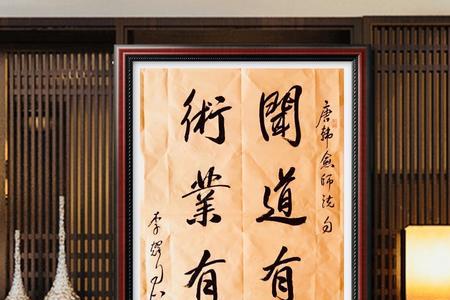 唐韩愈師说句
聞道有
術業有
李